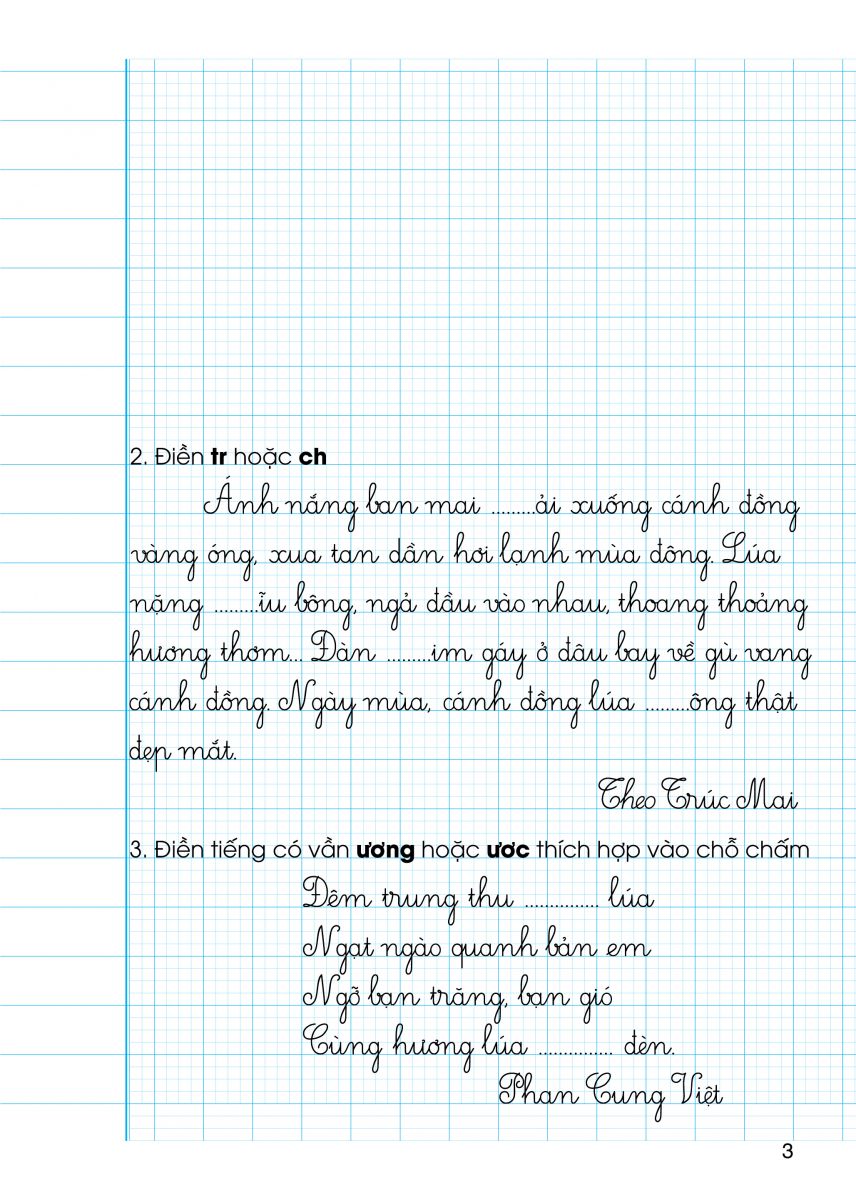 2. Điền tr hoặc ch
Ánh nắng ban mai .........ải xuống cánh đồng
vàng óng, xua tan dần hơi lạnh mùa đông. Lúa
nặng .........ĩu bông, ngả đầu vào nhau, thoang thoảng
hương thơm... Đàn .........im gáy ở đâu bay về gù vang
cánh đồng. Ngày mùa, cánh đồng lúa .........ông thật
đẹp mắt.
Theo Trúc Mai
3. Điền tiếng có vần ương hoặc ươc thích hợp vào chỗ chấm
Đêm trung thu ............... lúa
Ngạt ngào quanh bản em
Ngỡ bạn trăng, bạn gió
Cùng hương lúa ............... đèn.
Phan Cung Việt
3